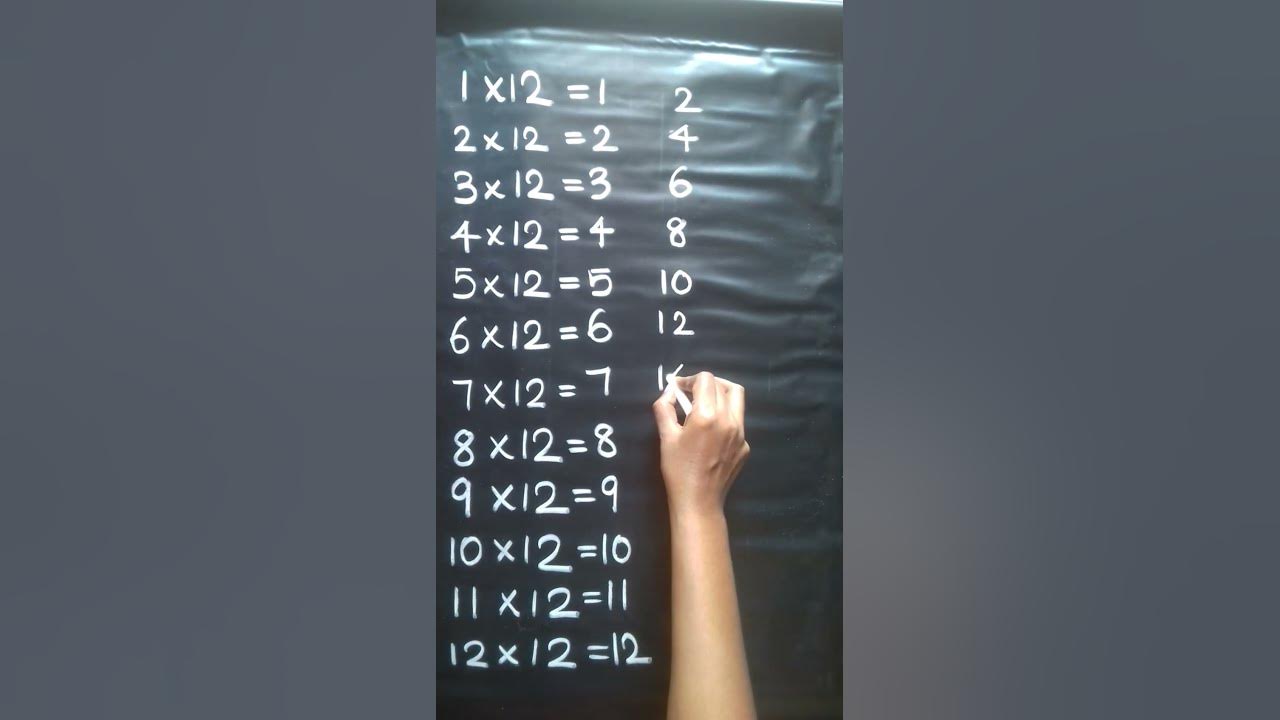 1 x 12 = 1 2
2 x 12 = 2 4
3 x 12 = 3 6
4 x 12 = 4 8
5 x 12 = 5 10
6 x 12 = 6 12
7 x 12 = 7
8 x 12 = 8
9 x 12 = 9
10 x 12 = 10
11 x 12 = 11
12 x 12 = 12